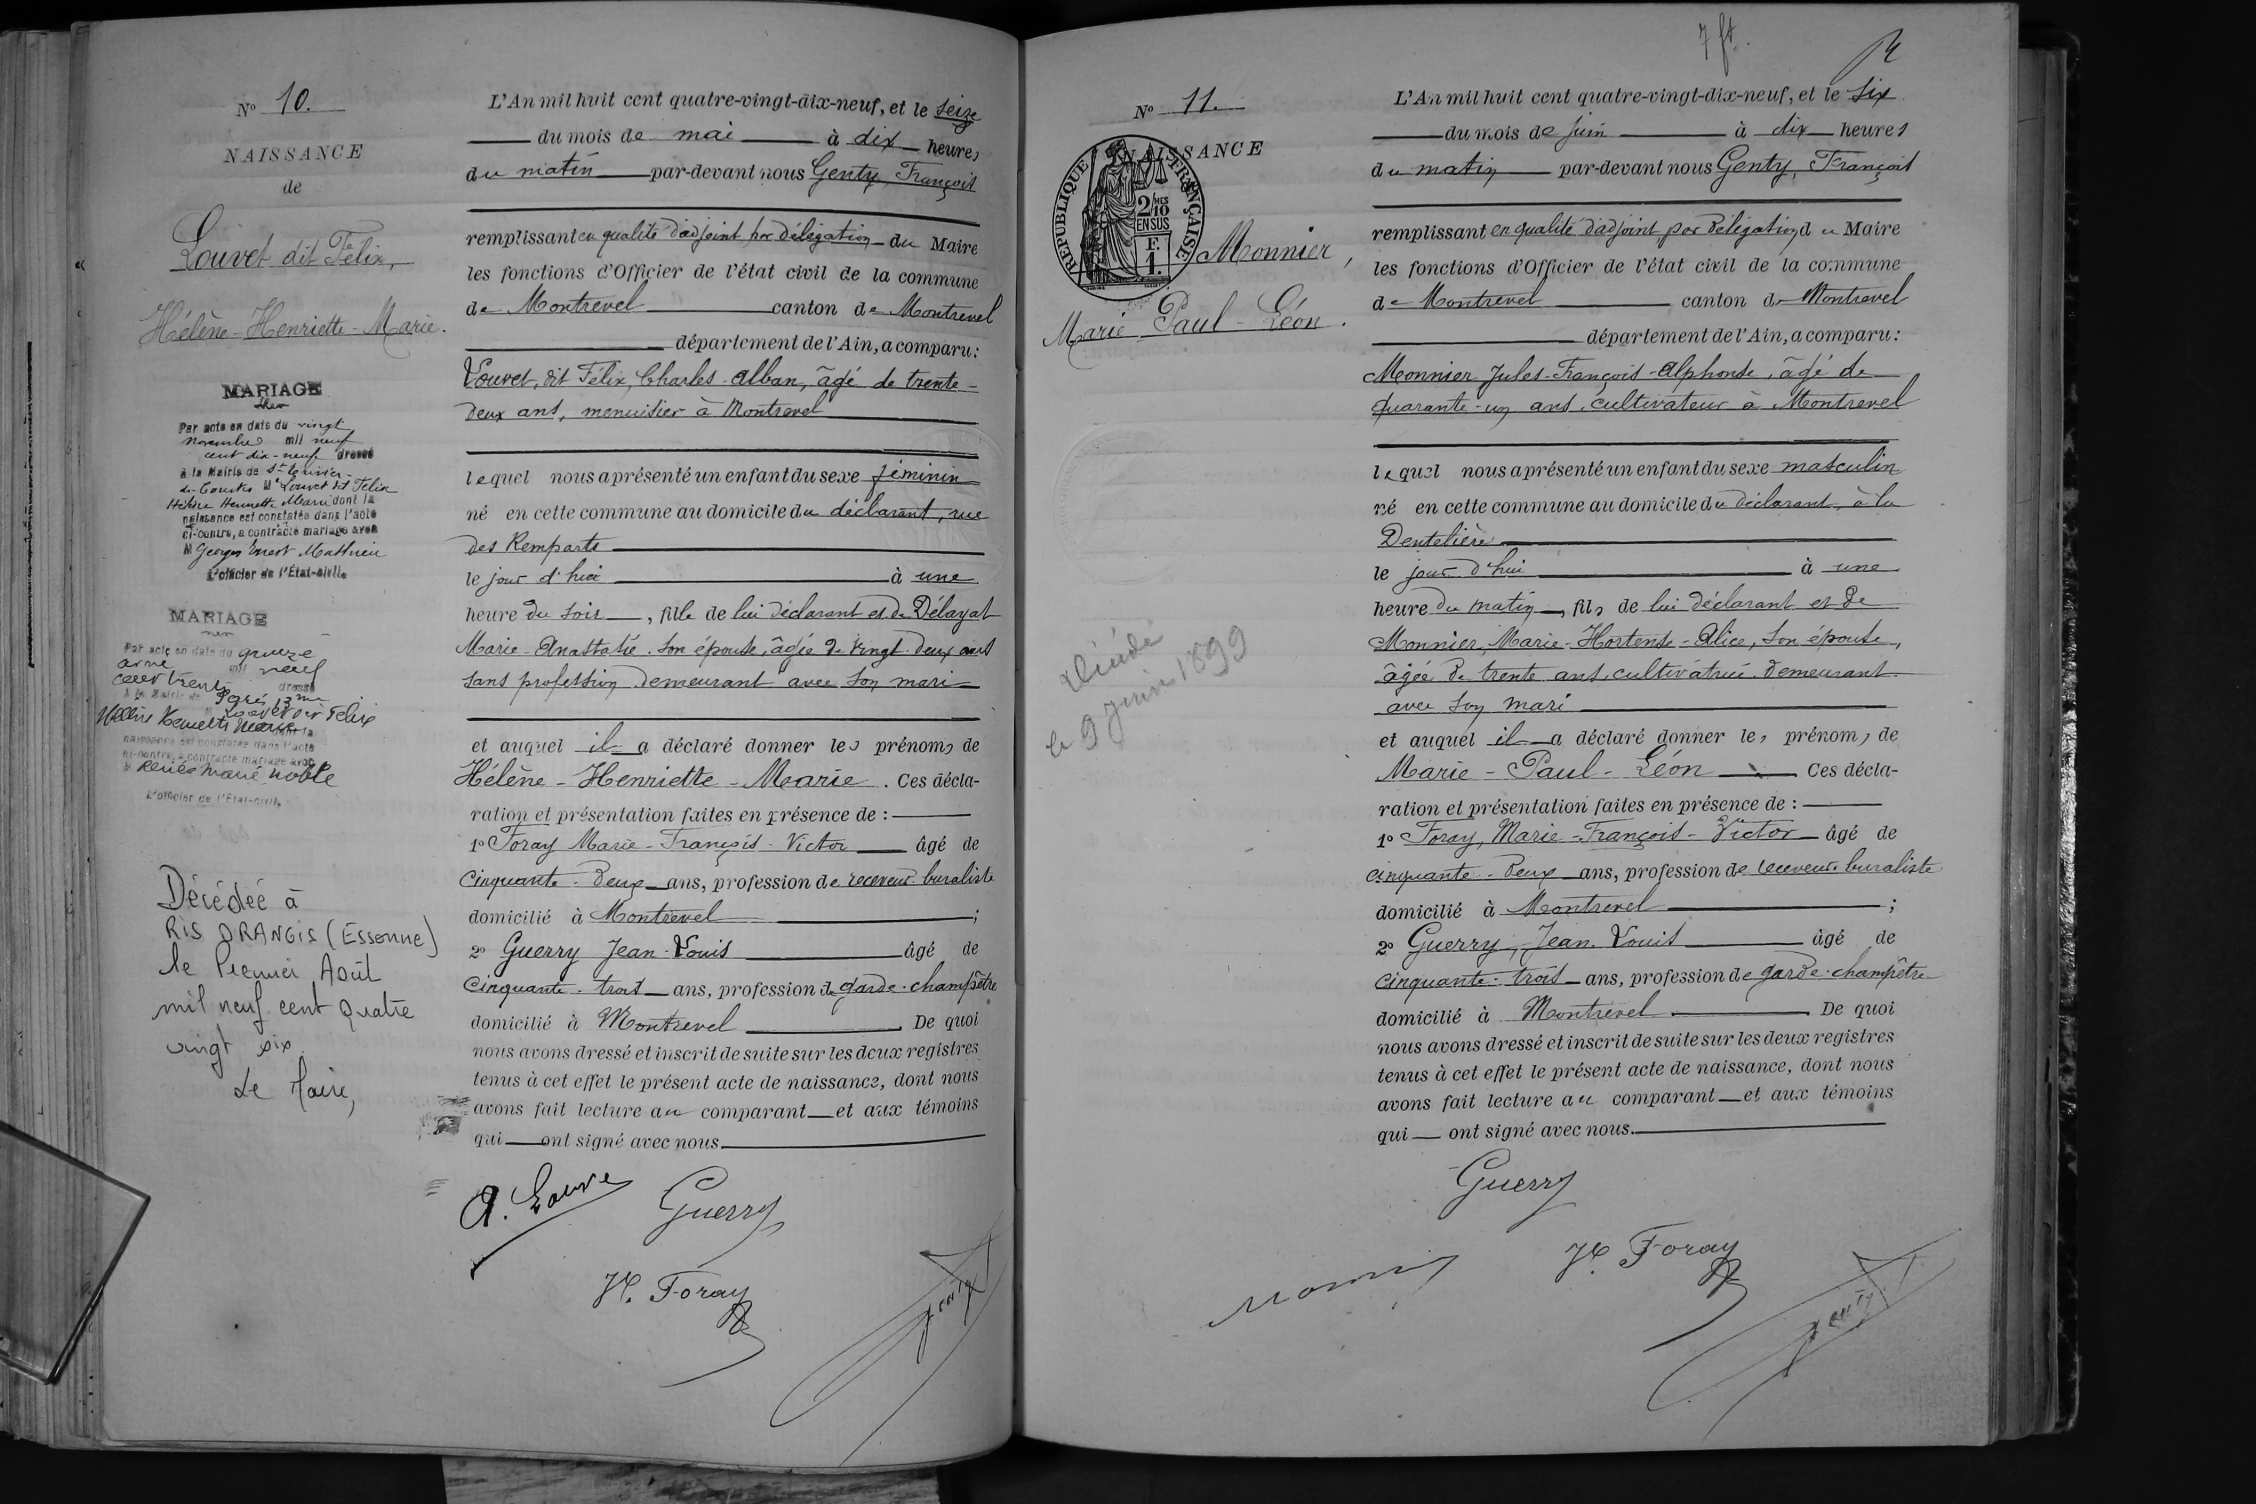 N° 10.
NAISSANCE
de
Louvet dit Félix,
Hélène-Henriette-Marie.
MARIAGE
Par acte en date du vingt
novembre mil neuf
cent dix-neuf dressé
à la Mairie de St
Mlle Louvet dit Félix
Hélène Henriette Marie dont la
naissance est constatée dans l'acte
ci-contre, a contracté mariage avec
M Georges Ernest Mathieu
L'officier de l'État-civil.
MARIAGE
Par acte en date du
mil neuf
cent trente dressé
à la Mairie de
Louvet dit Félix
Hélène Henriette Marie dont la
naissance est constatée dans l'acte
ci-contre, a contracté mariage avec
M René Marie Noble
L'officier de l'État-civil.
Décédée à
RIS ORANGIS (Essonne)
le Premier Août
mil neuf cent quatre
vingt six
Le Maire,
L'An mil huit cent quatre-vingt-dix-neuf, et le seize
du mois de mai à dix heures
du matin par-devant nous Genty, François
remplissant en qualité d'adjoint par délégation du Maire
les fonctions d'Officier de l'état civil de la commune
de Montrevel canton de Montrevel
département de l'Ain, a comparu:
Louvet, dit Félix, Charles-Alban, âgé de trente-
deux ans, menuisier à Montrevel
lequel nous a présenté un enfant du sexe féminin
né en cette commune au domicile du déclarant, rue
des Remparts
le jour d'hui à une
heure du soir, fille de lui déclarant et de Délayat
Marie-Anastasie, son épouse, âgée de vingt-deux ans
sans profession demeurant avec son mari
et auquel il a déclaré donner les prénoms de
Hélène-Henriette-Marie. Ces décla-
ration et présentation faites en présence de:
1° Foray Marie-François-Victor âgé de
cinquante-deux ans, profession de receveur-buraliste
domicilié à Montrevel;
2° Guerry Jean-Louis âgé de
cinquante-trois ans, profession de garde-champêtre
domicilié à Montrevel. De quoi
nous avons dressé et inscrit de suite sur les deux registres
tenus à cet effet le présent acte de naissance, dont nous
avons fait lecture au comparant et aux témoins
qui ont signé avec nous.
A. Louve
Guerry
V. Foray
Genty
7 ft.
N° 11.
NAISSANCE
RÉPUBLIQUE FRANÇAISE
2/10 MES
EN SUS
F.
1.
Monnier,
Marie-Paul-Léon.
le 9 juin 1899
L'An mil huit cent quatre-vingt-dix-neuf, et le six
du mois de juin à dix heures
du matin par-devant nous Genty, François
remplissant en qualité d'adjoint par délégation du Maire
les fonctions d'Officier de l'état civil de la commune
de Montrevel canton de Montrevel
département de l'Ain, a comparu:
Monnier Jules-François-Alphonse, âgé de
quarante-un ans, cultivateur à Montrevel
lequel nous a présenté un enfant du sexe masculin
né en cette commune au domicile du déclarant, à la
Dentelière
le jour d'hui à une
heure du matin, fils de lui déclarant et de
Monnier, Marie-Hortense-Alice, son épouse,
âgée de trente ans, cultivatrice demeurant
avec son mari
et auquel il a déclaré donner les prénoms de
Marie-Paul-Léon. Ces décla-
ration et présentation faites en présence de:
1° Foray, Marie-François-Victor âgé de
cinquante-deux ans, profession de receveur-buraliste
domicilié à Montrevel;
2° Guerry, Jean-Louis âgé de
cinquante-trois ans, profession de garde-champêtre
domicilié à Montrevel. De quoi
nous avons dressé et inscrit de suite sur les deux registres
tenus à cet effet le présent acte de naissance, dont nous
avons fait lecture au comparant et aux témoins
qui ont signé avec nous.
Guerry
V. Foray
Genty